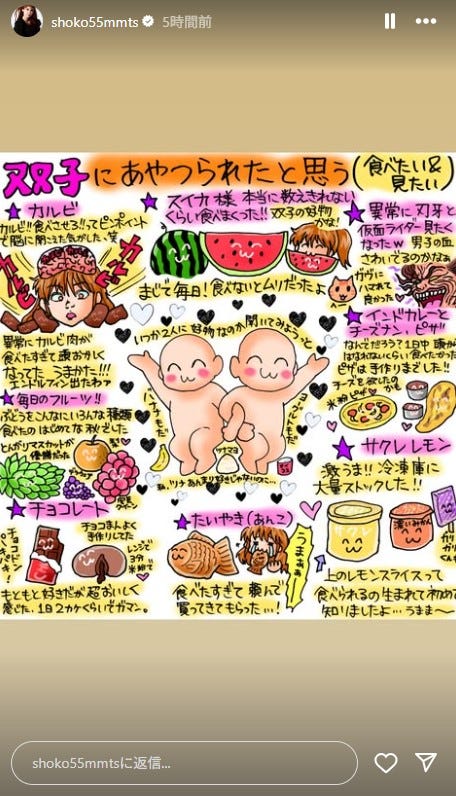 shoko55mmts
5時間前
双子にあやつられたと思う(食べたい&見たい)
★カルビ
カルビ!!食べさせろ!!ってピンポイント
で脳に聞こえた気がした。笑
カルビ
カルビ
異常にカルビ肉が
食べたすぎて頭おかしく
なってた うまかた!!!
エンドルフィン出たわァ
★スイカ様 本当に数えきれない
くらい食べまくった!!双子の好物
かな!
まじで毎日!食べないとムリだったよ
★異常に刃牙と
仮面ライダー見たく
なったw 男子の血
さわいでるのかなぁ
ガヴに
ハマれて
良かった
いつか2人に好物なのか聞いてみようっと
★インドカレーと
チーズナン、ピザ!!
なんでだろう?1日中頭が
はなれないくらい食べたかった
ピザは手作りまでした!!
★毎日のフルーツ!!
ぶどうをこんなにいろんな種類
食べたのはじめてな秋でした
とんがりマスカットが
優勝だった
梨
バナナもだ
ツナマヨ
私、ツナあんまり好きじゃないのに…
★サクレレモン
激うま!!冷凍庫に
大量ストックした!!
濃いみかん
★チョコレート
チョコまんよく
手作りしてた
レンジで
もともと好きだが超おいしく
感じた。1日2カケくらいでガマン。
★たいやき(あんこ)
うまぁぁ
食べたすぎて頼んで
買ってきてもらった…!
上のレモンスライスって
食べられるの生まれて初めて
知りましたよ…うまま〜
shoko55mmtsに返信...